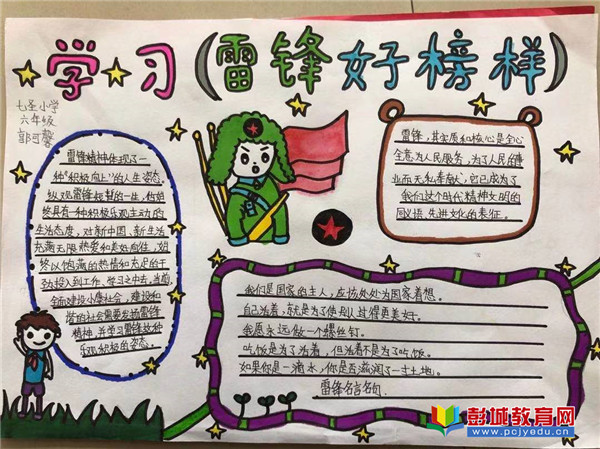 学习(雷锋好榜样)
七圣小学
六年级
郭可馨
雷锋精神体现了一
种"积极向上"的人生姿态。
纵观雷锋短暂的一生,他始
终具有一种积极乐观主动的
生活态度,对新中国、新生活
充满无限热爱和美好向往,始
终以饱满的热情和充足的干
劲投入到工作、学习之中去,当前,
全面建设小康社会,建设和
谐的社会需要发扬雷锋
精神,并学习雷锋这种
乐观积极的姿态。
雷锋,其实质和核心是全心
全意为人民服务,为了人民的事
业而无私奉献,它已成为了
我们这个时代精神文明的
同义语、先进文化的表征。
我们是国家的主人,应该处处为国家着想。
自己活着,就是为了使别人过得更美好。
我愿永远做一个螺丝钉。
吃饭是为了活着,但活着不是为了吃饭。
如果你是一滴水,你是否滋润了一寸土地。
雷锋名言名句
彭城教育网
www.pcjyedu.cn